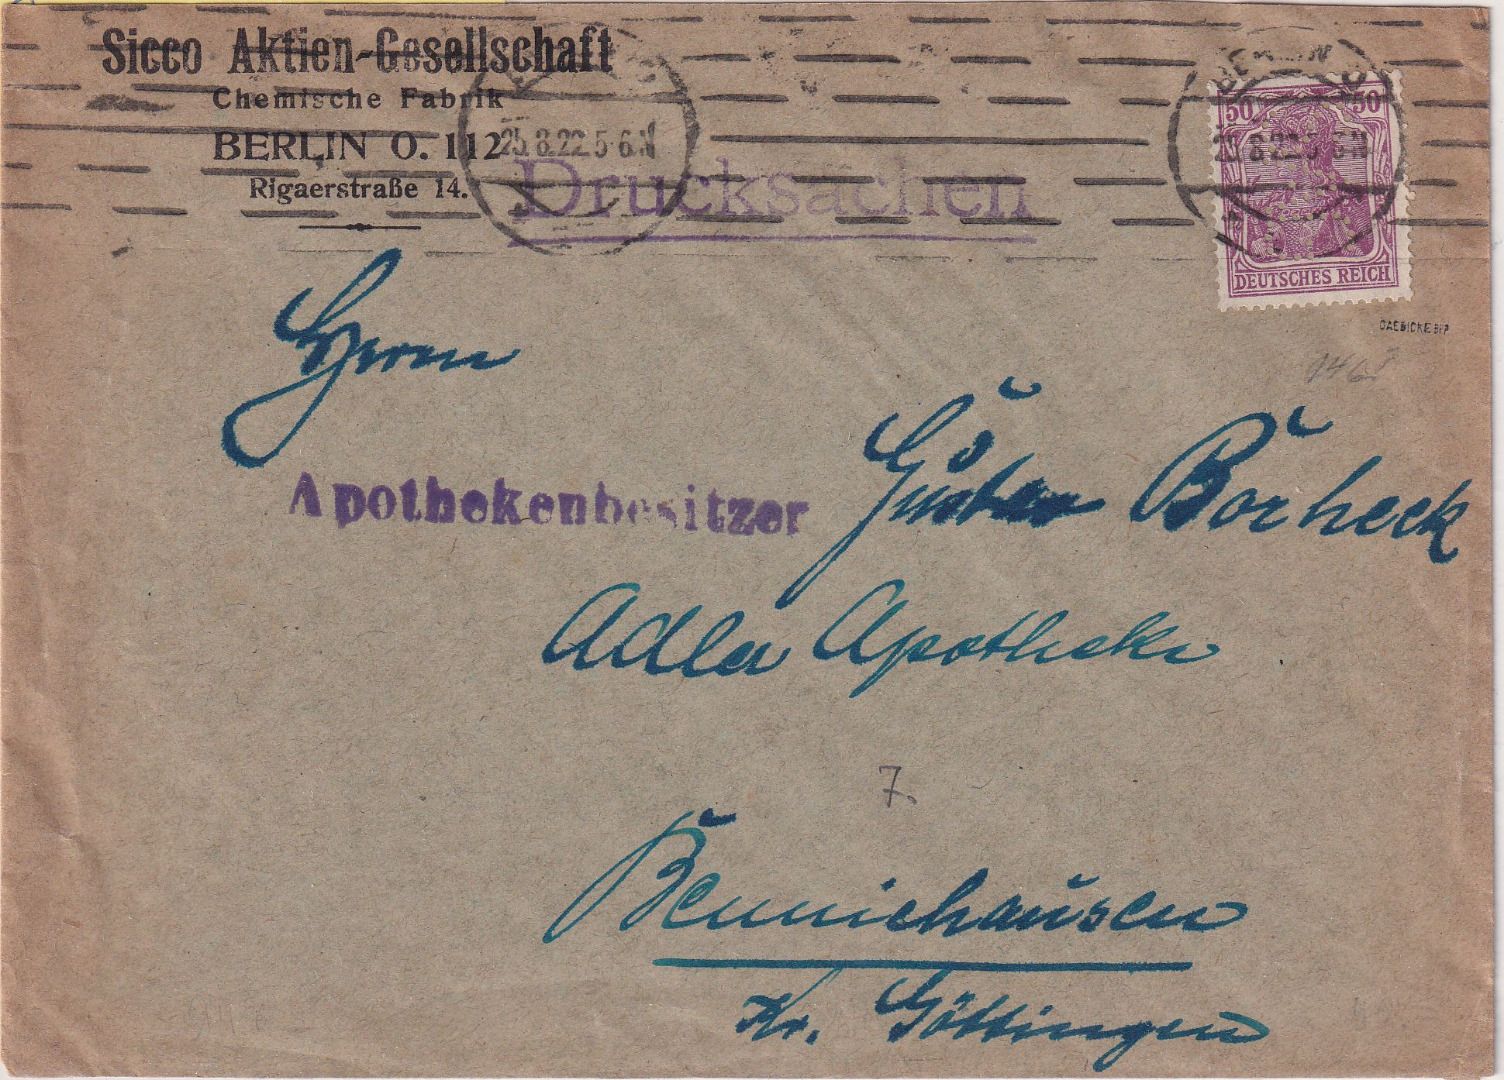 Sicco Aktien-Gesellschaft
Chemische Fabrik
BERLIN O. 112
Rigaerstraße 14.
25.8.22.5-6.N
Drucksachen
BERLIN
25.8.22.5-6N
50 50
DEUTSCHES REICH
GAEBICKE BPP
Herrn
Apothekenbesitzer Gustav Borheck
Adler Apotheke
7.
Bennichausen
Kr. Göttingen